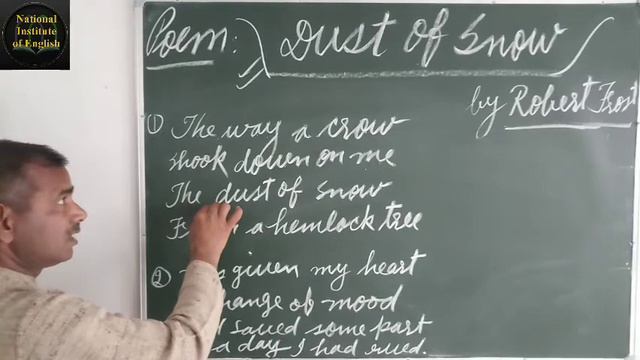 National
Institute
of English
Poem: Dust Of Snow
by Robert Frost
① The way a crow
shook down on me
The dust of snow
a hemlock tree
② given my heart
mood
saved some part
a day I had rued.